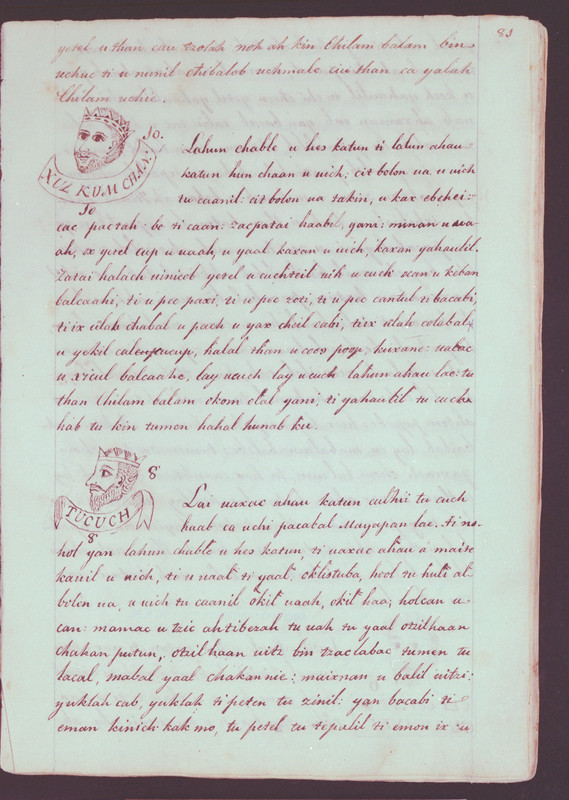 83
yetel u than cau tzolah noh ah kin Chilam balam bin
uchuc ti u numil otzilalob uchmale ciu than ca yalah
Chilam uchie.
10.
XUZ KUM CHAN.
10
Lahun chable u hes katun ti lahun ahau
katun hun chaan u uich; cit bolon ua u uich
tu caanil: cit bolon ua takin, u kax ebchei-
cac pactah: be ti caan: zacpatai haabil, yani: minan u ua-
ah, ox yetel cup u uaah, u yaal kaxan u uich, kaxan yahaulil.
Zatai halach uinicil yetel u cuchteil uik u cuch ocan u keban
balcaahi, ti u pec paxi, ti u pec zoti, ti u pec cantul ti bacabi,
ti ix uilak chabal u pach u yax cheil cabi, ti ix ulak colabal
u yokil calen cucup, halal than u coos poop, kuxane: uabac
u xicul balcaahe, lay ucuch lay ucuch lahun ahau lae: tu
than Chilam balam okom olal yani, ti yahaulil tu cuch
hab tu kin tumen hahal hunab ku.
8
TUCUCH
8
Lai uaxac ahau katun culhii tu cuch
haab ca uchi pacabal Mayapan lae. ti no-
hol yan lahun chable u hes katun, ti uaxac ahau a maite
kauil u uich, ti u naat ti yaal, oklistuba, hool tu hul at
bolon ua, u uich tu caanil okil uaah, okil haa; holcan u
can: mamac u tzic ah tibezah tu uah tu yaal otzilhaan
chakan putun, otzilhaan uitz bin tzaclabac tumen tu
tacal, mabal yaal chakannie: maixnan u balil uitzi:
yuklah cab, yuklah ti peten tu zinil: yan bacabi ti
eman kinich kak mo, tu petel tu tepalil ti emon ix u